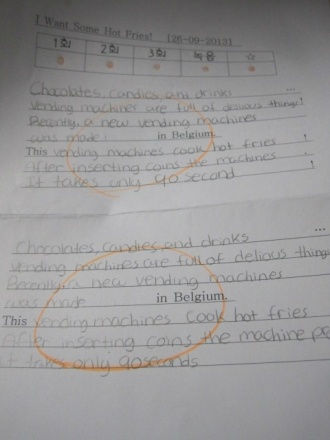 I Want Some Hot Fries! [26-09-2013]
1회 2회 3회 녹음 ☆
Chocolates, candies, and drinks ...
Vending machines are full of delious things!
Recently, a new vending machines
was made in Belgium.
This vending machines cook hot fries !
After inserting coins the machines .
It takes only 90 second !
Chocolates, candies, and drinks ...
Vending machines are full of delious things
Recently, a new vending machines
was made in Belgium.
This vending machines cook hot fries
After inserting coins the machine
It takes only 90seconds